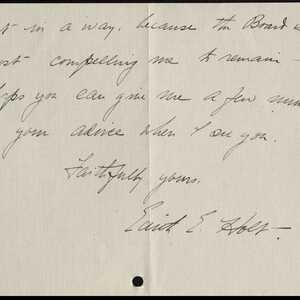 t in a way, because the Board
ost compelling me to remain -
ps you can give me a few
your advice when I see you.
Faithfully yours,
E. Holt.